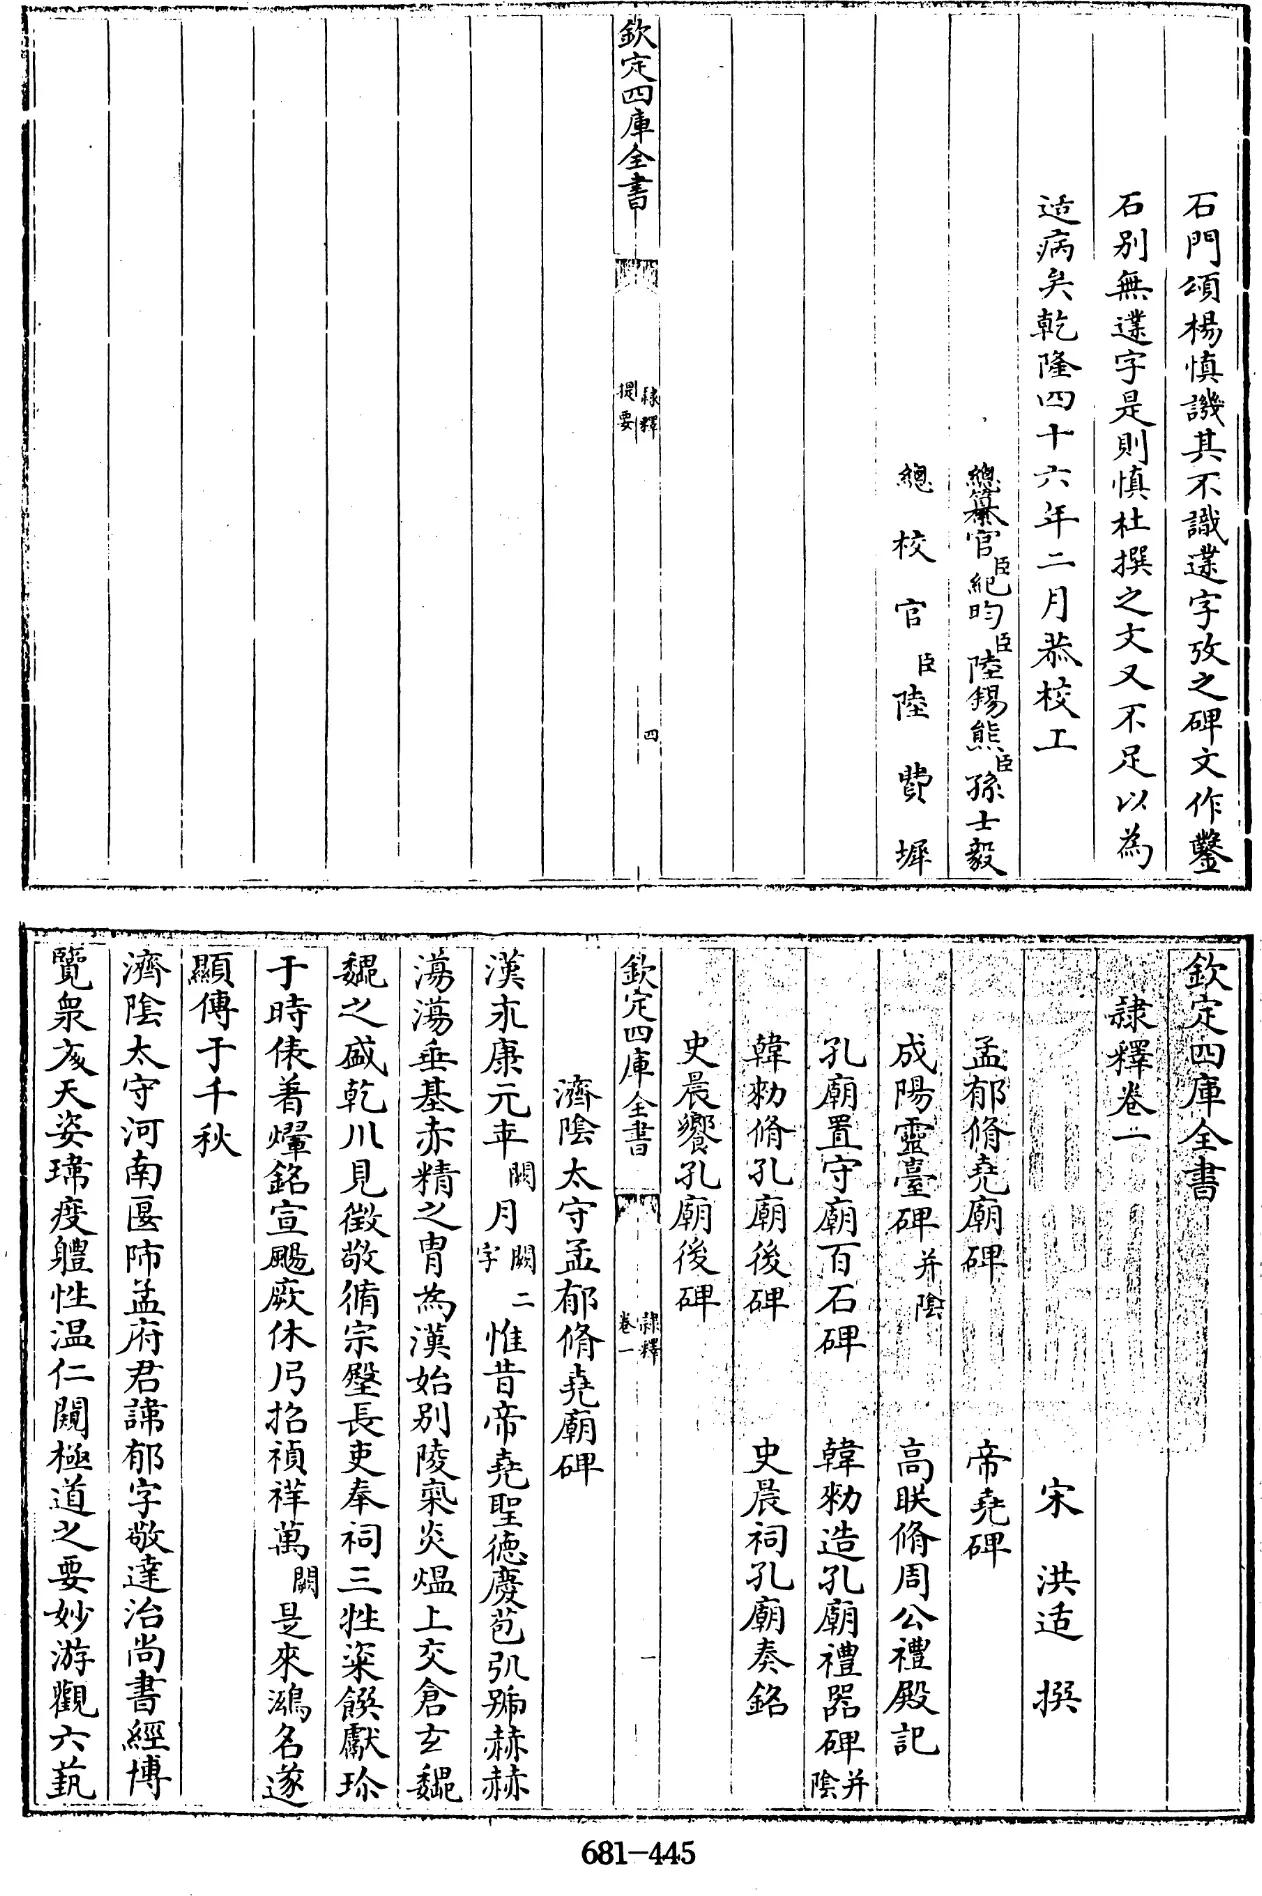 石門頌楊慎譏其不識䢫字攷之碑文作鑿
石別無䢫字是則慎杜撰之文又不足以為
适病矣乾隆四十六年二月恭校上
總纂官臣紀昀臣陸錫熊臣孫士毅
總校官臣陸費墀
欽定四庫全書
隸釋
提要
四
欽定四庫全書
隸釋卷一
宋 洪适 撰
孟郁脩堯廟碑 帝堯碑
成陽靈臺碑并陰 高眹脩周公禮殿記
孔廟置守廟百石碑 韓勑造孔廟禮器碑并陰
韓勑脩孔廟後碑 史晨祠孔廟奏銘
史晨饗孔廟後碑
欽定四庫全書
隸釋
卷一
一
濟陰太守孟郁脩堯廟碑
漢永康元年闕月闕二字惟昔帝堯聖德慶苞弘號赫赫
蕩蕩垂基赤精之胄為漢始別陵氣炎煴上交倉玄巍
巍之盛乾川見徵敬脩宗殿長吏奉祠三牲粢饌獻珍
于時俵著煇銘宣颺厥休乃招禎祥萬闕是來鴻名遂
顯傳于千秋
濟陰太守河南匽師孟府君諱郁字敬達治尚書經博
覽衆文天姿瑋度軆性温仁闚極道之要妙游觀六蓺
681-445